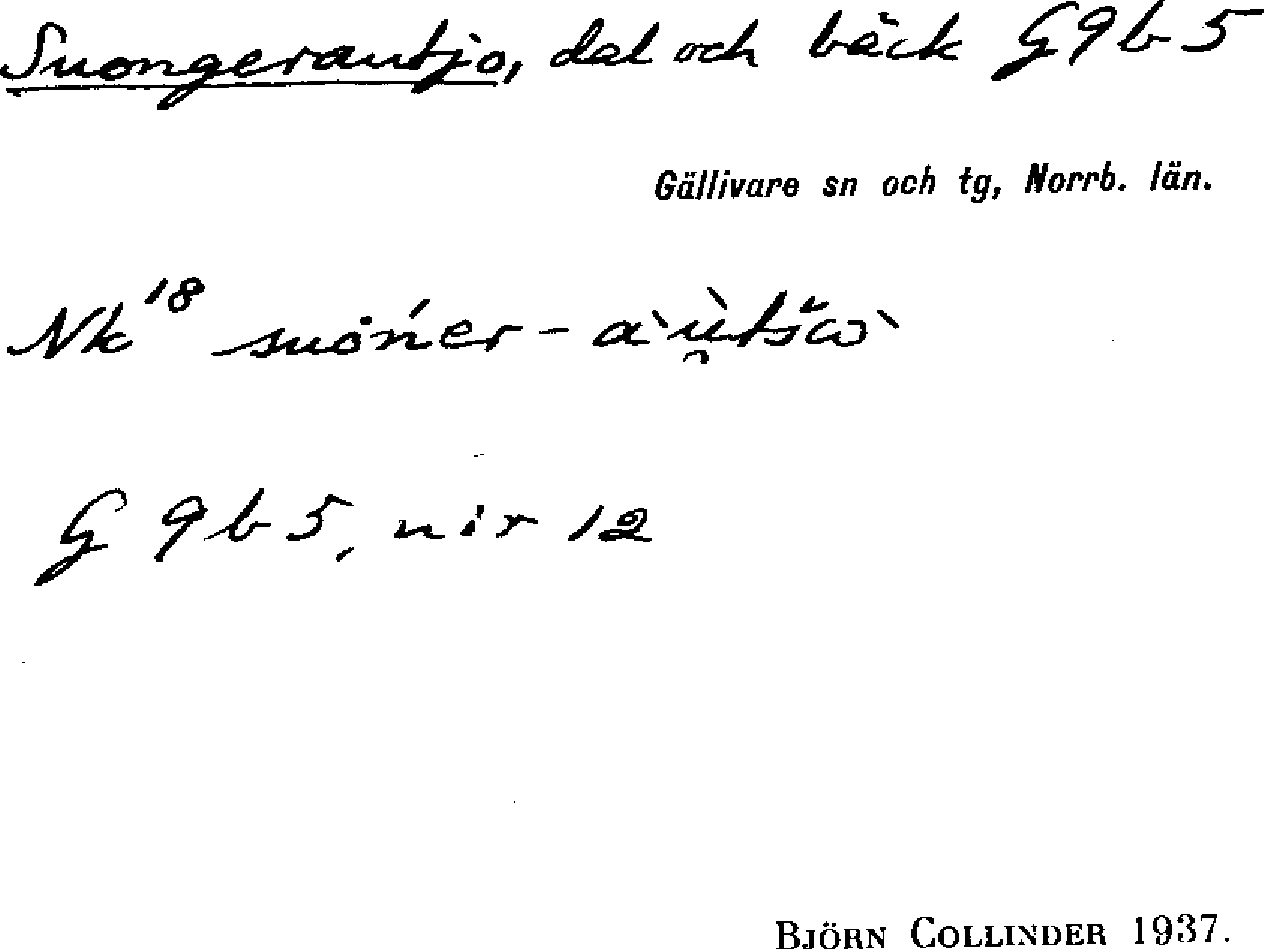 Suongerautjo, dal och bäck G9b5
Gällivare sn och tg, Norrb. län.
Nk 18
G 9b5, nir 12
BJÖRN COLLINDER 1937.